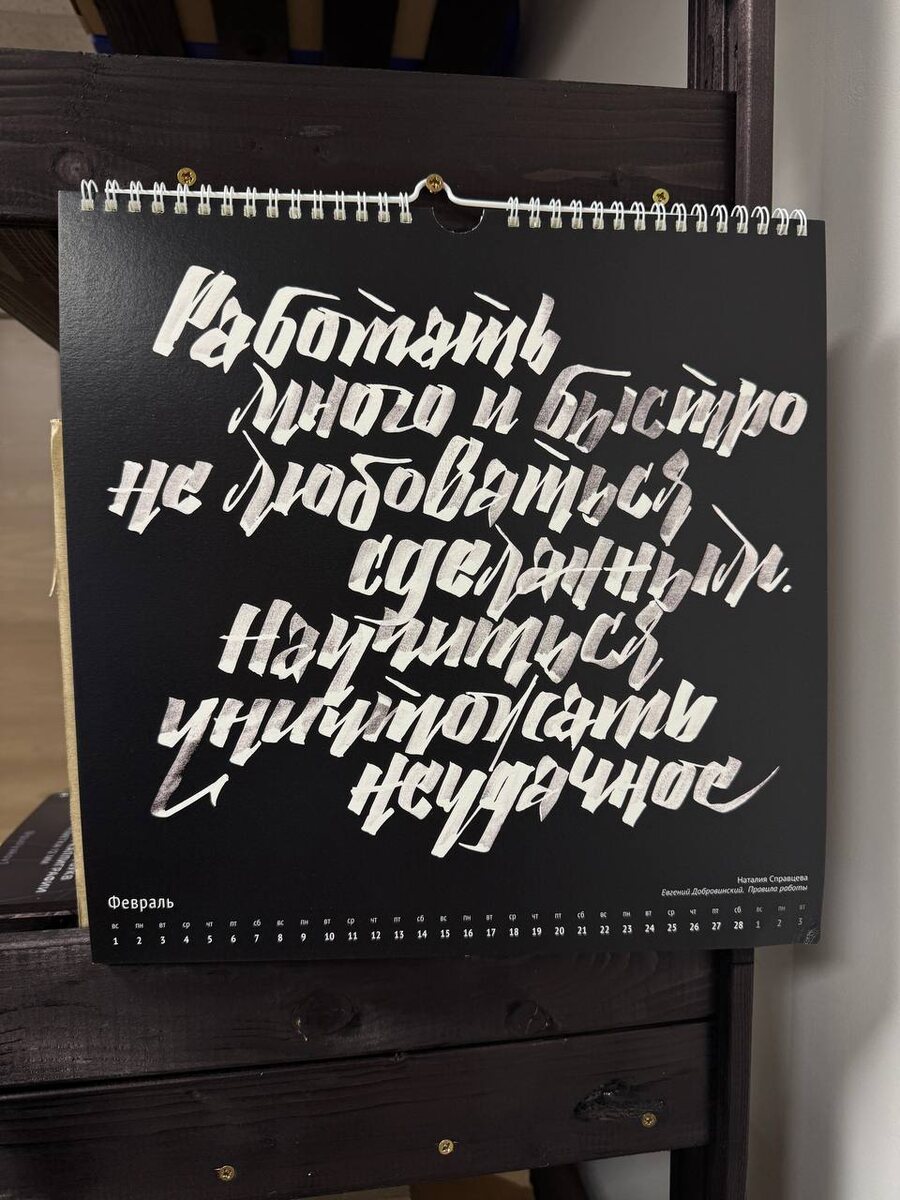 Работать
много и быстро
не любоваться
сделанным.
Научиться
уничтожать
неудачное
Наталия Справцева
Евгений Добровинский. Правила работы
Февраль
вс пн вт ср чт пт сб вс пн вт ср чт пт сб вс пн вт ср чт пт сб вс пн вт ср чт пт сб вс пн вт
1 2 3 4 5 6 7 8 9 10 11 12 13 14 15 16 17 18 19 20 21 22 23 24 25 26 27 28 1 2 3